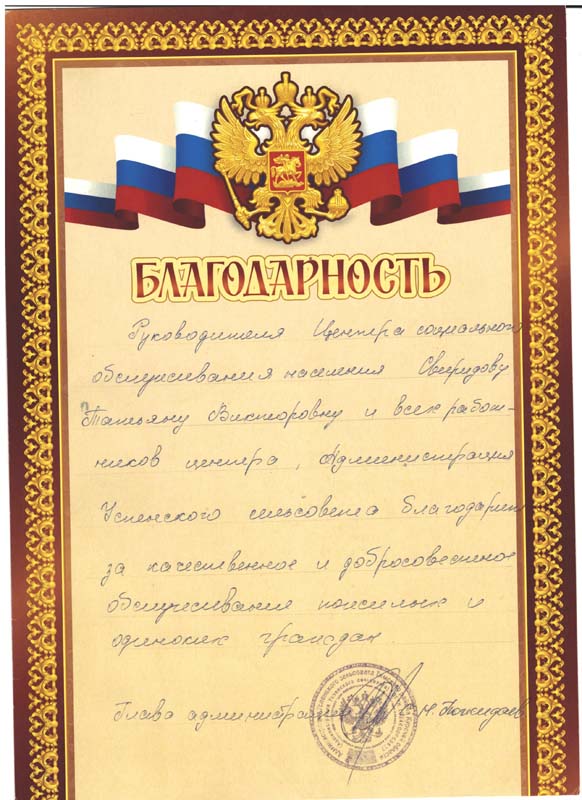 БЛАГОДАРНОСТЬ
Руководителя Центра социального
обслуживания населения Свиридову
Татьяну Викторовну и всех работ-
ников центра, Администрация
Успенского сельсовета благодарит
за качественное и добросовестное
обслуживание пожилых и
одиноких граждан.
Глава администрации С.Н. Пожидаев